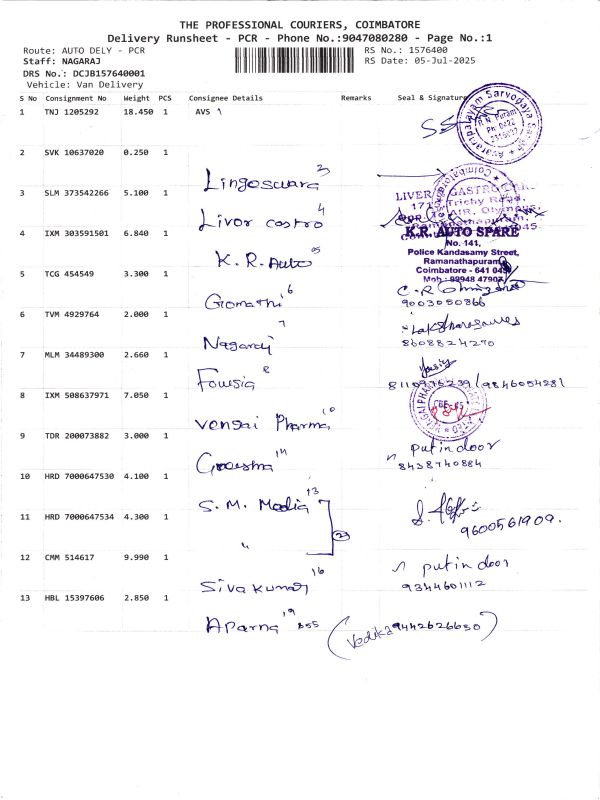 THE PROFESSIONAL COURIERS, COIMBATORE
Delivery Runsheet - PCR - Phone No.:9047080280 - Page No.:1
Route: AUTO DELY - PCR
RS No.: 1576400
Staff: NAGARAJ
RS Date: 05-Jul-2025
DRS No.: DCJB157640001
Vehicle: Van Delivery
S No Consignment No Weight PCS Consignee Details Remarks Seal & Signature
1 TNJ 1205292 18.450 1 AVS
2 SVK 10637020 0.250 1
Lingeswara 3
3 SLM 373542266 5.100 1
Livor castro 4
LIVER GASTRO
Trichy Road,
4 IXM 303591501 6.840 1
K.R. Auto 05
K.R. AUTO SPARE
No. 141,
Police Kandasamy Street,
Ramanathapuram
Coimbatore - 641 045
Mob : 99948 47907
5 TCG 454549 3.300 1
Gomathi 6
9003050866
6 TVM 4929764 2.000 1
Nagaraj 7
8608824270
7 MLM 34489300 2.660 1
Fousia 8
8110976239/9846054281
8 IXM 508637971 7.050 1
Vengai Pharma 10
9 TDR 200073882 3.000 1
14
put in door
8438740884
10 HRD 7000647530 4.100 1
S.M. Media 13
11 HRD 7000647534 4.300 1
"
23
9600561909.
12 CMM 514617 9.990 1
Sivakumar 16
put in door
9344601112
13 HBL 15397606 2.850 1
Aparna 19 855
(Vedika 9442626630)